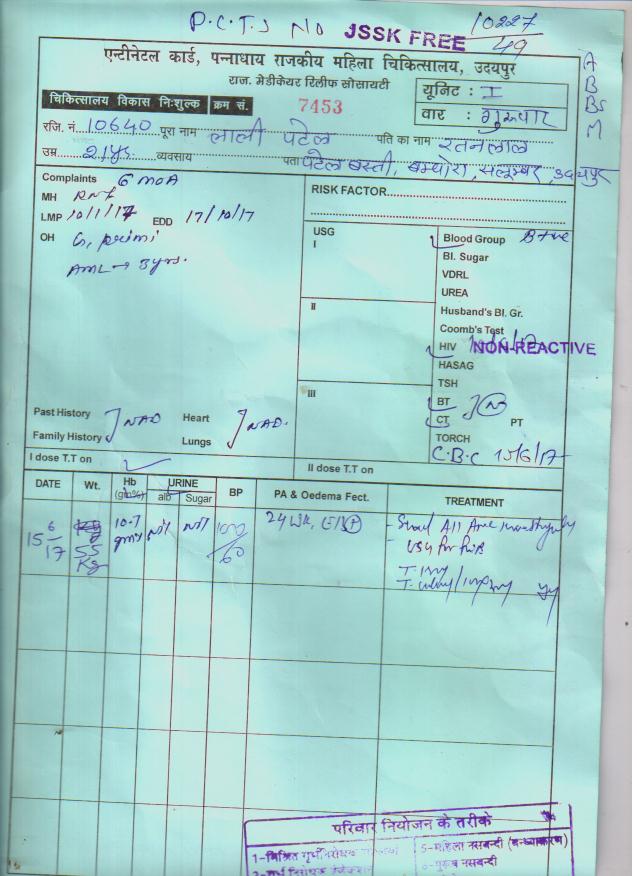 P.C.T.S NO JSSK FREE 10227/49
एन्टीनेटल कार्ड, पन्नाधाय राजकीय महिला चिकित्सालय, उदयपुर
राज. मेडीकेयर रिलीफ सोसायटी
यूनिट : I
चिकित्सालय विकास निःशुल्क क्रम सं. 7453
वार : गुरूवार
A
B
Bs
M
रजि. नं. 10640 पूरा नाम लाली पटेल पति का नाम रतनलाल
उम्र 21 yrs व्यवसाय पता पटेल बस्ती, बम्बोरा, सलूम्बर, उदयपुर
Complaints 6 MOA
MH
LMP 10/1/17 EDD 17/10/17
OH G, primi
AML → 3 yrs.
RISK FACTOR
USG
I
II
III
Blood Group B+ve
Bl. Sugar
VDRL
UREA
Husband's Bl. Gr.
Coomb's Test
HIV NON-REACTIVE
HASAG
TSH
BT N
CT PT
TORCH
C.B.C 15/6/17
Past History NAD Heart NAD.
Family History Lungs
I dose T.T on II dose T.T on
DATE Wt. Hb (gm%) URINE alb Sugar BP PA & Oedema Fect. TREATMENT
15/6/17 55 Kg 10.7 gms Nil Nil 100/60 24 WK,
- USG for
परिवार नियोजन के तरीके
1-मिश्रित गर्भ निरोधक
5-महिला नसबन्दी (बन्ध्याकरण)
पुरूष नसबन्दी